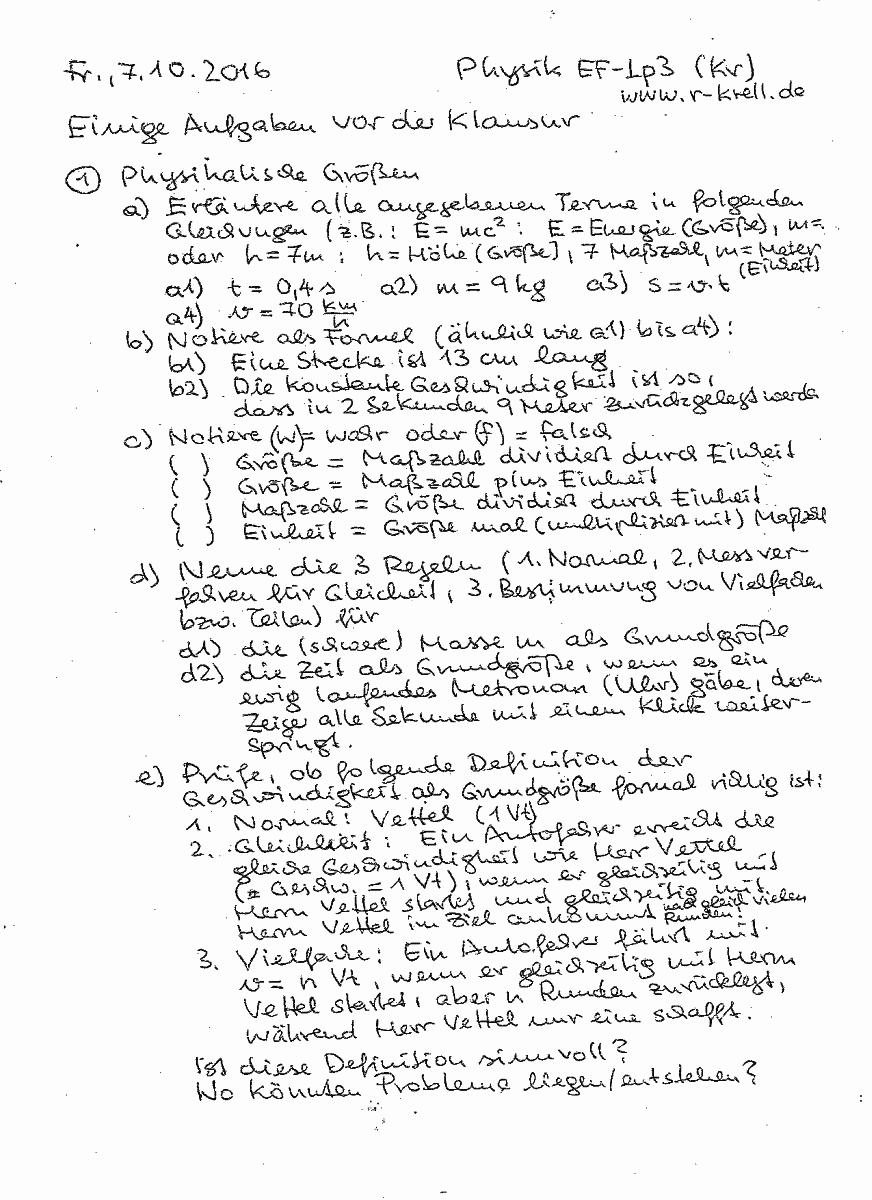 Fr., 7.10.2016 Physik EF-Lp3 (Kr)
www.r-krell.de
Einige Aufgaben vor der Klausur
① Physikalische Größen
a) Erläutere alle angegebenen Terme in folgenden
Gleichungen (z.B.: E = mc²: E = Energie (Größe), m=..
oder h = 7m : h = Höhe (Größe), 7 Maßzahl, m = Meter
(Einheit)
a1) t = 0,4 s a2) m = 9 kg a3) s = v·t
a4) v = 70 km/h
b) Notiere als Formel (ähnlich wie a1) bis a4):
b1) Eine Strecke ist 13 cm lang
b2) Die konstante Geschwindigkeit ist so,
dass in 2 Sekunden 9 Meter zurückgelegt werden
c) Notiere (w) = wahr oder (f) = falsch
( ) Größe = Maßzahl dividiert durch Einheit
( ) Größe = Maßzahl plus Einheit
( ) Maßzahl = Größe dividiert durch Einheit
( ) Einheit = Größe mal (multipliziert mit) Maßzahl
d) Nenne die 3 Regeln (1. Normal, 2. Messver-
fahren für Gleichheit, 3. Bestimmung von Vielfachen
bzw. Teilen) für
d1) die (schwere) Masse m als Grundgröße
d2) die Zeit als Grundgröße, wenn es ein
ewig laufendes Metronom (Uhr) gäbe, deren
Zeiger alle Sekunde mit einem Klick weiter-
springt.
e) Prüfe, ob folgende Definition der
Geschwindigkeit als Grundgröße formal richtig ist:
1. Normal: Vettel (1 Vt)
2. Gleichheit: Ein Autofahrer erreicht die
gleiche Geschwindigkeit wie Herr Vettel
(≙ Geschw. = 1 Vt), wenn er gleichzeitig mit
Herrn Vettel startet und gleichzeitig mit
Herrn Vettel im Ziel ankommt nach gleich vielen
Runden!
3. Vielfache: Ein Autofahrer fährt mit
v = n Vt, wenn er gleichzeitig mit Herrn
Vettel startet, aber n Runden zurücklegt,
während Herr Vettel nur eine schafft.
Ist diese Definition sinnvoll?
Wo könnten Probleme liegen/entstehen?